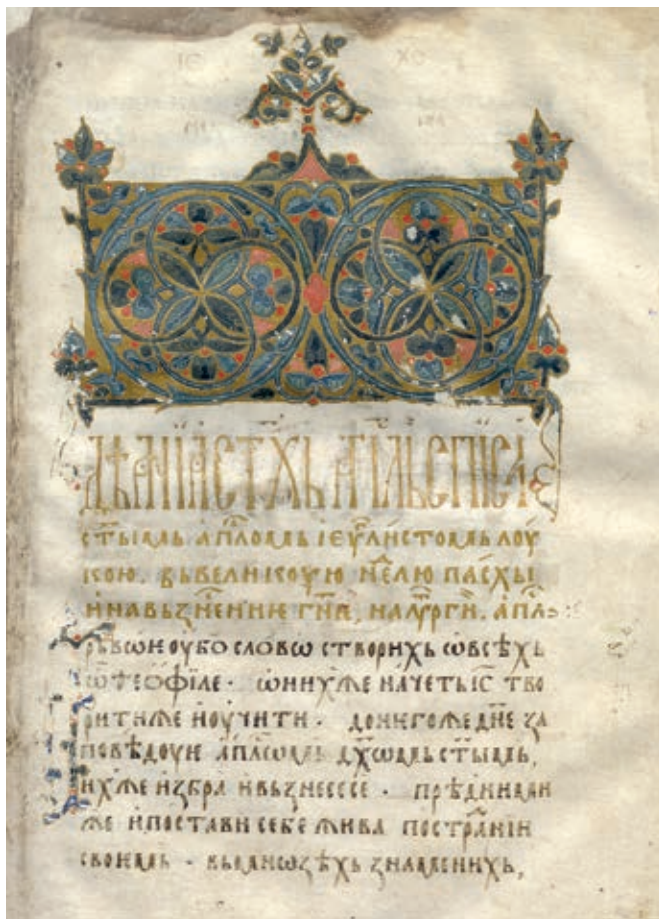 ДѢАНЇА СТ҃ХЬ АП҃ЛЬ СПИСА
ст҃ымь ап҃ломь і еѵ҃листомь лоу
кою. вь великоую не҃лю пасхы
и на вьзн҃сенние гн҃ѥ, на лѵ҃рги. ап҃ль:
рьвоѥ оубо слово створихь ѡ всѣхь
ѡ ѳеѡфіле · ѡ нихже начеть іс҃ тво
рити же и оучити · до нѥгоже дн҃е за
повѣдоуѥ ап҃лѡмь дх҃ѡмь ст҃ымь,
ихже избра и вьзнесесе · прѣд ними
же и постави себе жива по страніи
своимь · вь мнѡзѣхь знаменихь,